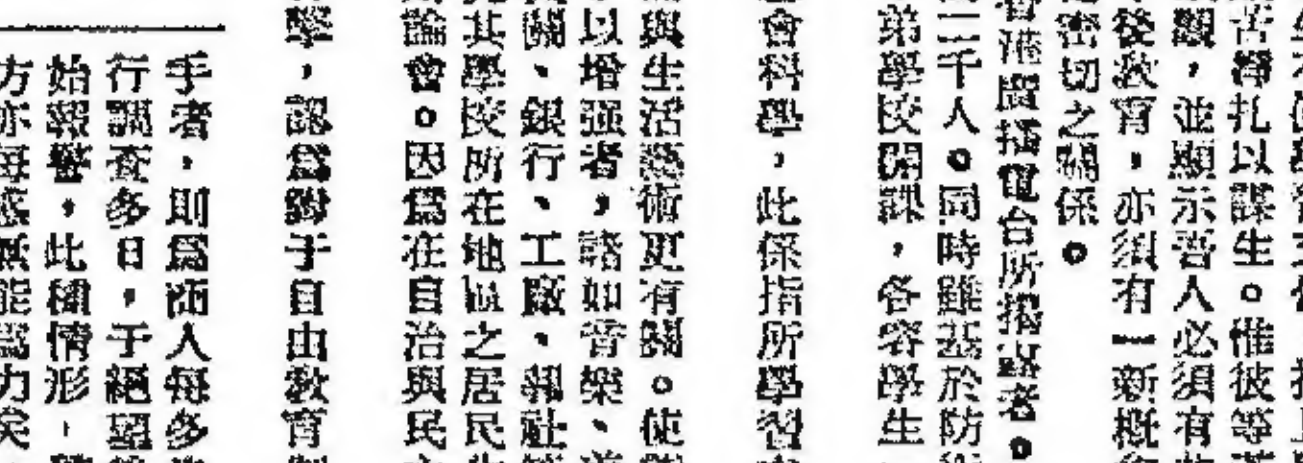 苦掙扎以謀生。惟彼等
，並顯示吾人必須有
後教育，亦須有一新概
密切之關係。
香港廣播電台所播出者。
二千人。同時雖基於防
弟學校開課，各容學生
會科學，此係指所學習
與生活藝術更有關。使
以增强者，諸如音樂、
關、銀行、工廠、報社
其學校所在地區之居民
論會。因爲在自治與民
擊，認爲對于自由教育制
手者，則爲商人每多
行調查多日，于絕望
始報警，此種情形，
方亦每感無能爲力矣